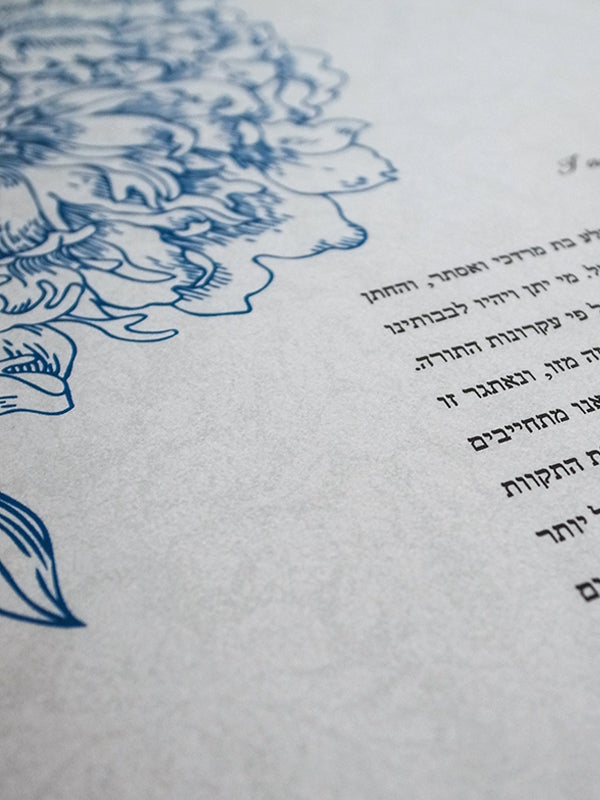 בת מרדכי ואסתר, והחתן
מי יתן ויהיו לבבותינו
פי עקרונות התורה.
מזו, ונאתגר זו
אנו מתחייבים
התקוות
יותר